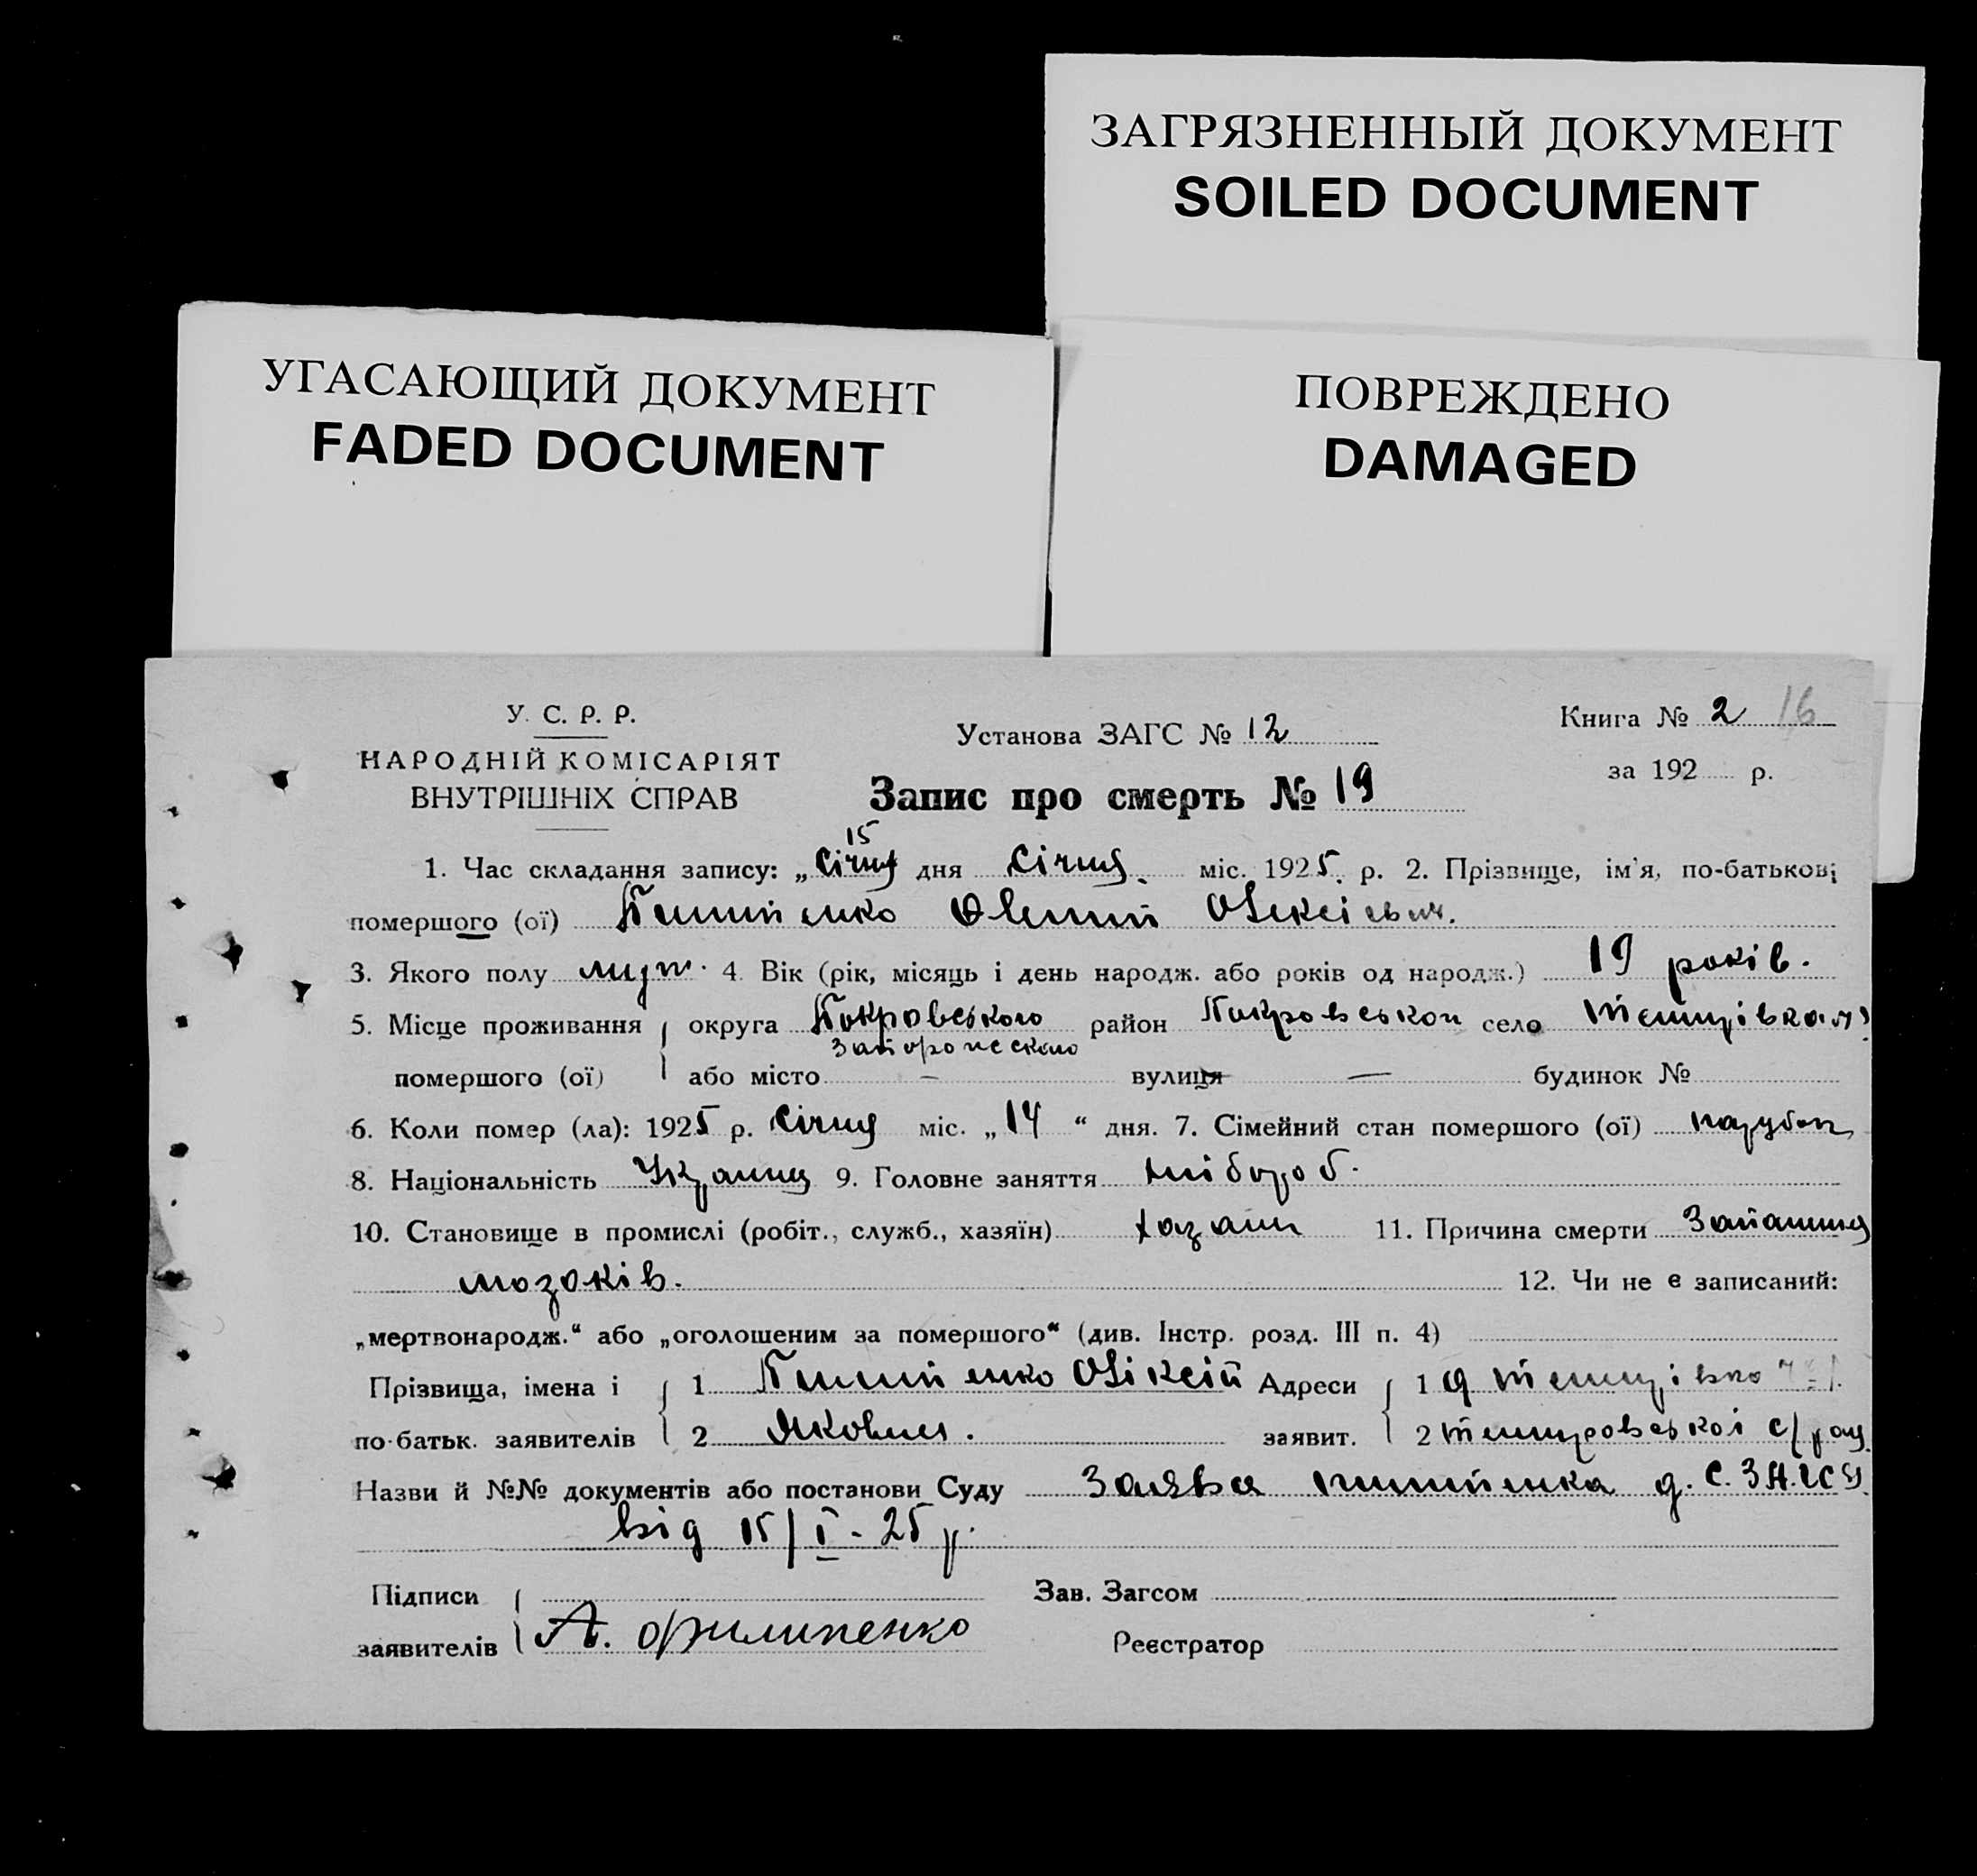 ЗАГРЯЗНЕННЫЙ ДОКУМЕНТ
SOILED DOCUMENT
УГАСАЮЩИЙ ДОКУМЕНТ
FADED DOCUMENT
ПОВРЕЖДЕНО
DAMAGED
У. С. Р. Р.
НАРОДНІЙ КОМІСАРІЯТ
ВНУТРІШНІХ СПРАВ
Установа ЗАГС № 12
Запис про смерть № 19
Книга № 2 16
за 192 р.
15
1. Час складання запису: „Січня дня Січня міс. 1925 р. 2. Прізвище, ім'я, по-батькові
помершого (ої) Олексієвич.
3. Якого полу муж. 4. Вік (рік, місяць і день народж. або років од народж.) 19 років.
5. Місце проживання округа Покровського район село
Запорожского
помершого (ої) або місто — вулиця — будинок №
6. Коли помер (ла): 1925 р. Січня міс. „14“ дня. 7. Сімейний стан помершого (ої) парубок
8. Національність 9. Головне заняття хлібороб.
10. Становище в промислі (робіт., служб., хазяїн) хазяїн 11. Причина смерти Запаління
мозоків. 12. Чи не є записаний:
„мертвонародж.“ або „оголошеним за помершого“ (див. Інстр. розд. III п. 4)
Прізвища, імена і 1 Адреси 1
по-батьк. заявителів 2 заявит. 2
Назви й №№ документів або постанови Суду Заява
від 15/I-25 р.
Підписи Зав. Загсом
заявителів А. Филипенко Реєстратор